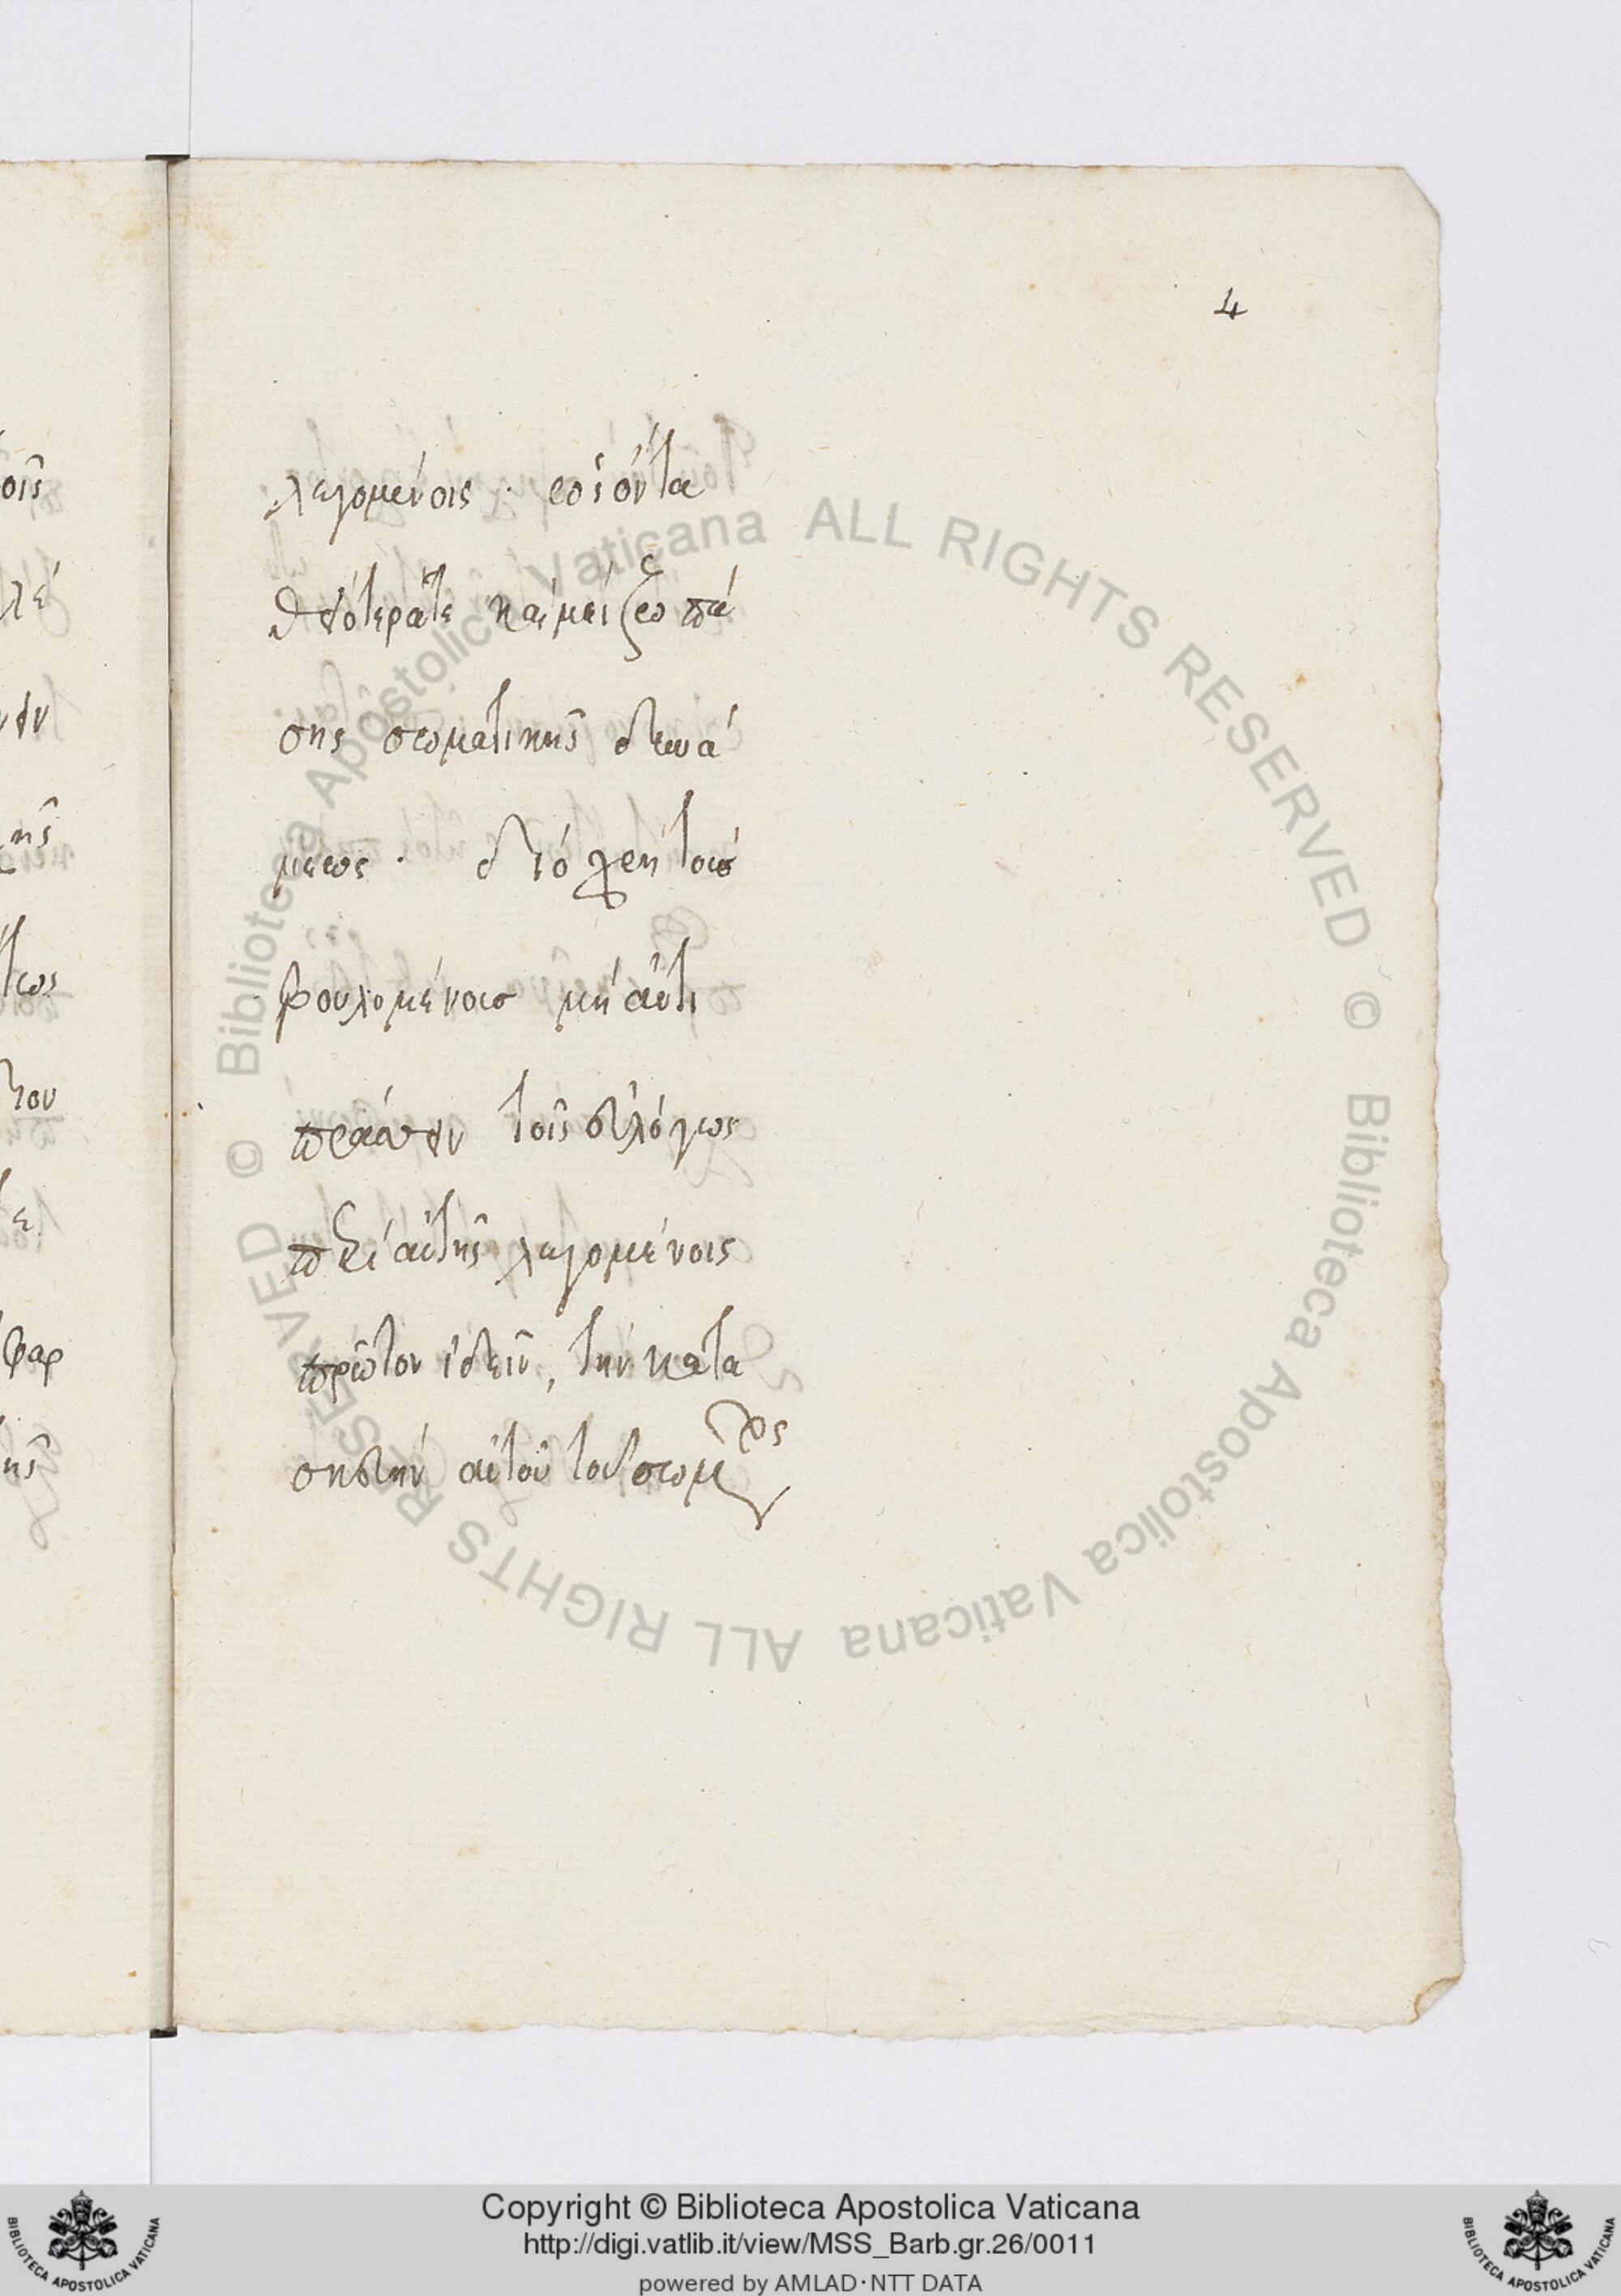 4
λεγομένοις · ὡς ὄντα
θειότερά τε καὶ μείζω πά
σης σωματικῆς δυνά
μεως · διὸ χρὴ τοὺς
βουλομένους μὴ ἀντι
πράττειν τοῖς εὐλόγως
περὶ αὐτῆς λεγομένοις
πρῶτον ἰδεῖν, τὴν κατα
αὐτοῦ τοῦ σώματος
οῖς
λέ
ειν
κῆς
τως
του
τε
φαρ
ῆς
Biblioteca Apostolica Vaticana ALL RIGHTS RESERVED ©
Biblioteca Apostolica Vaticana ALL RIGHTS RESERVED ©
Copyright © Biblioteca Apostolica Vaticana
http://digi.vatlib.it/view/MSS_Barb.gr.26/0011
powered by AMLAD·NTT DATA
BIBLIOTECA APOSTOLICA VATICANA
BIBLIOTECA APOSTOLICA VATICANA